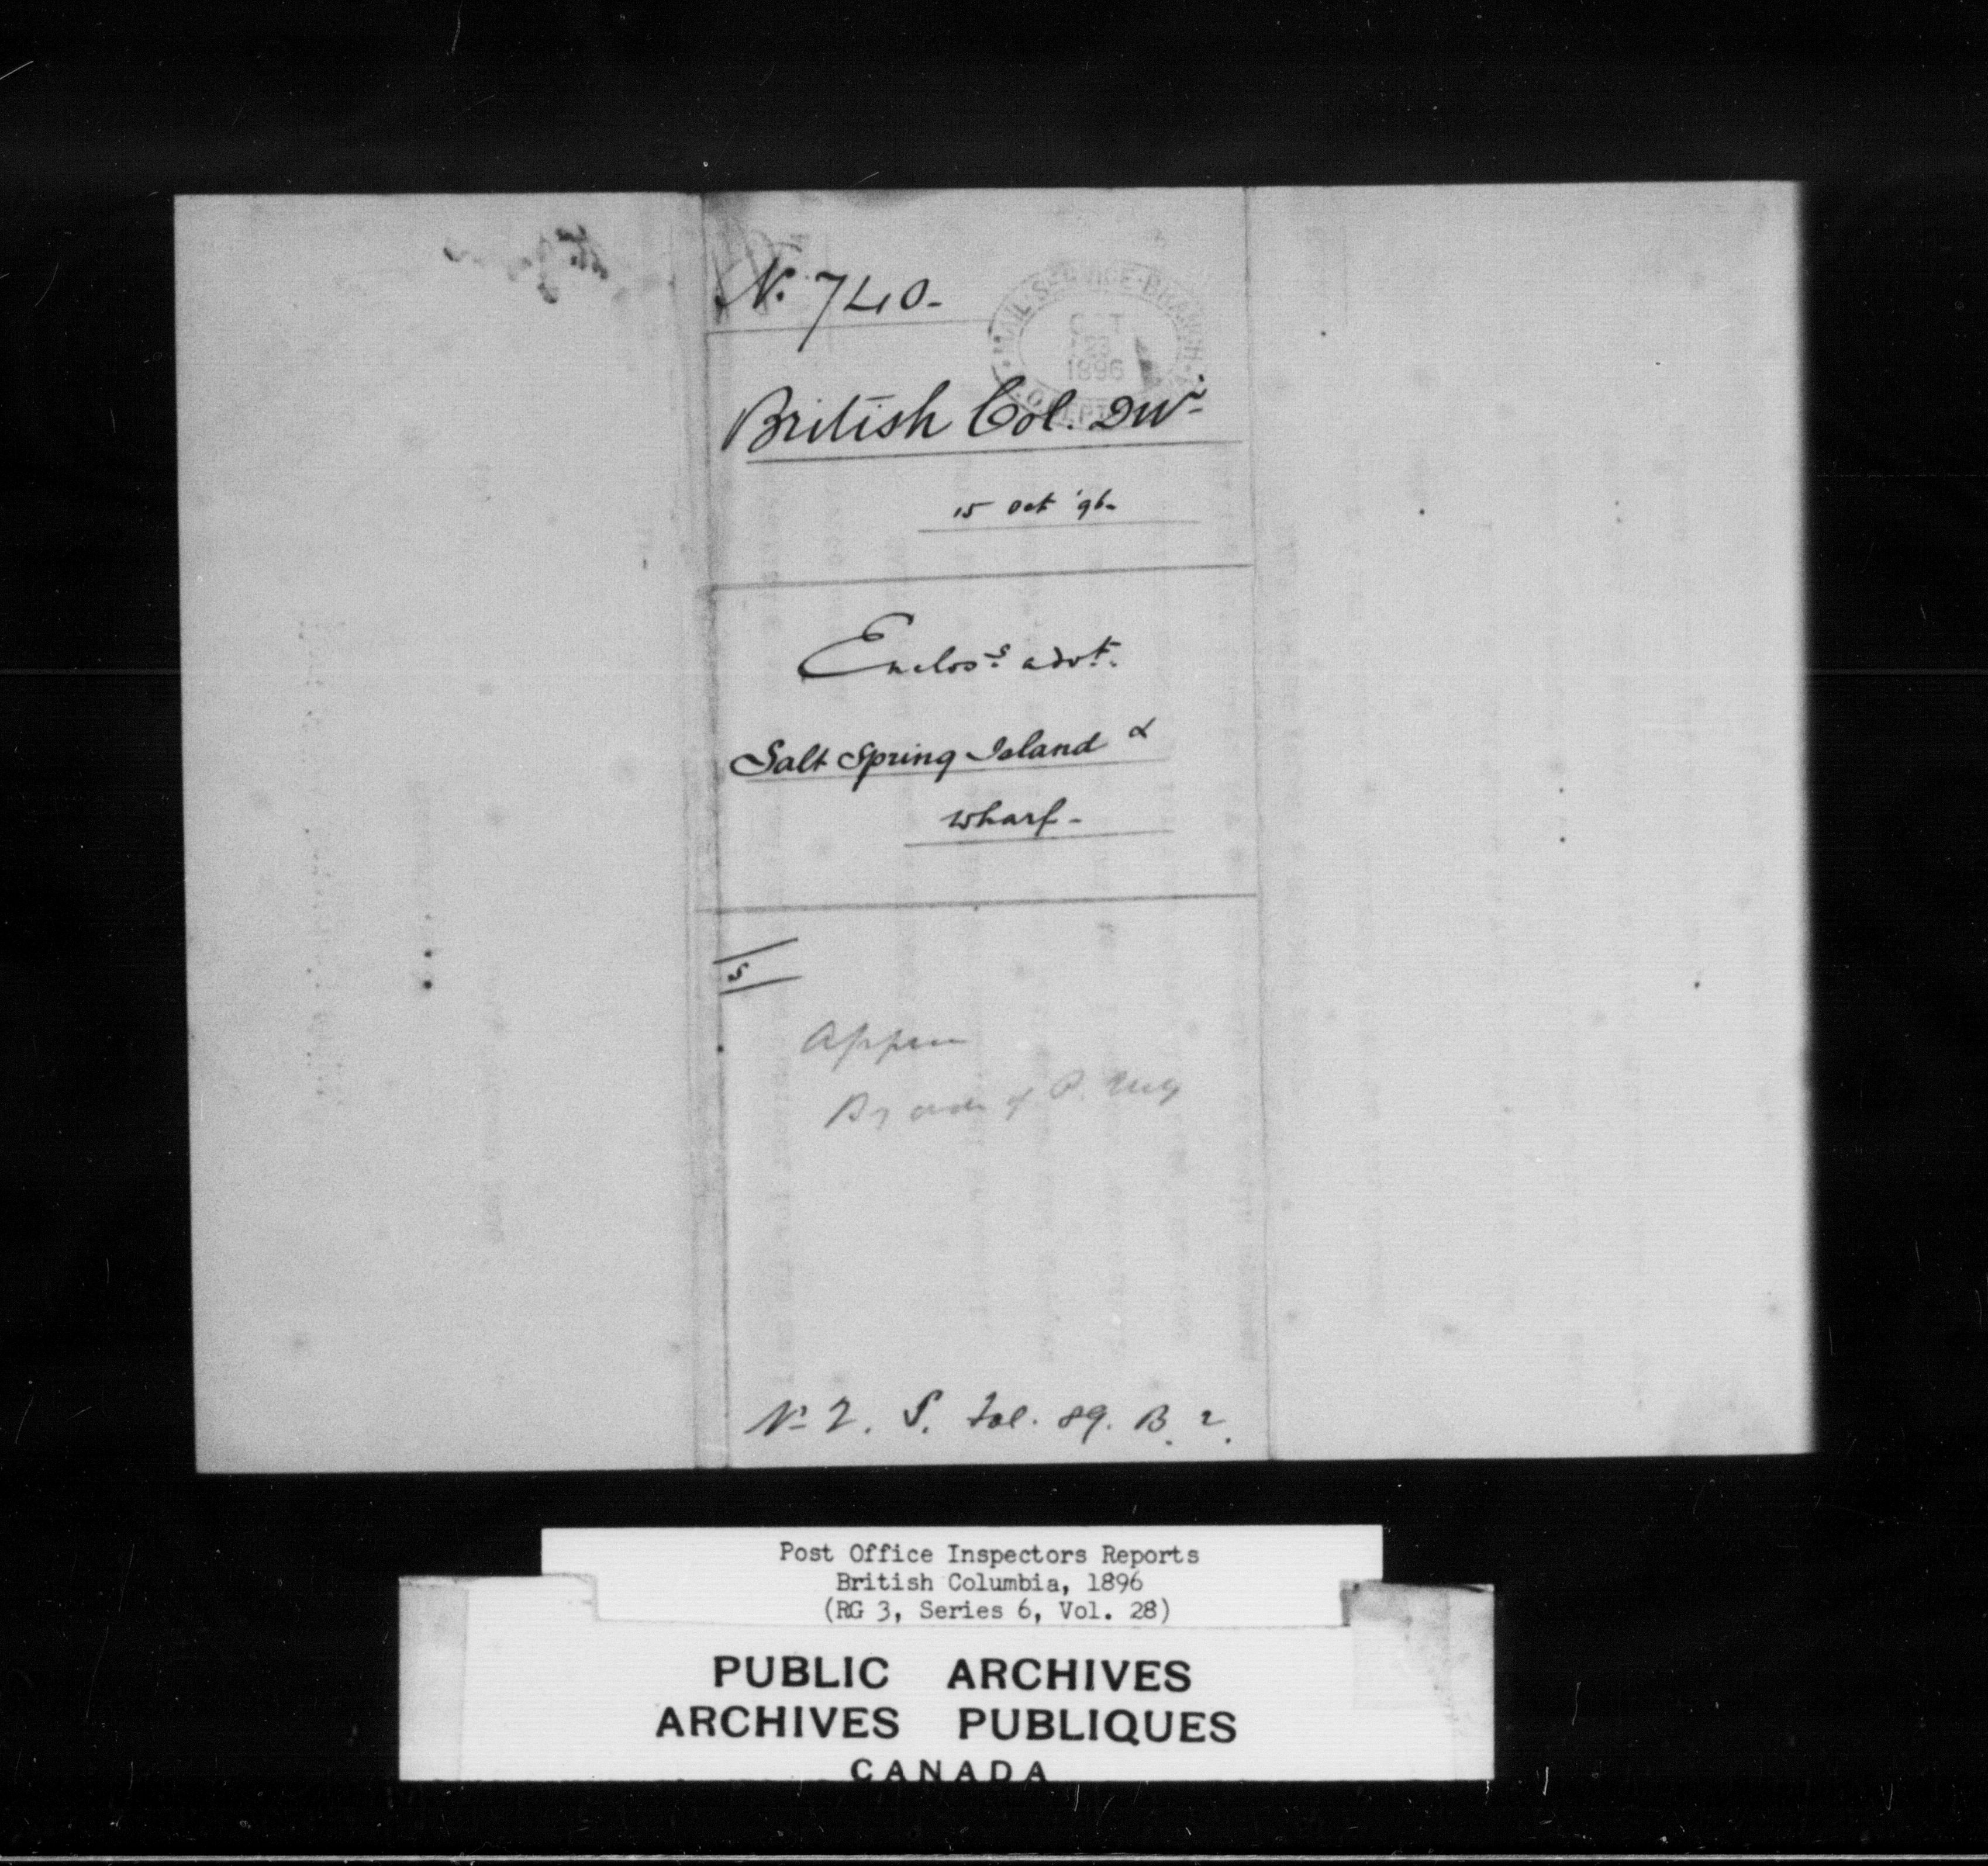 No. 740-
MAIL SERVICE BRANCH
OCT
1896
British Col. Divn
15 Oct '96-
Enclos.s advt.
Salt Spring Island &
Wharf-
5
By order of P.
No 2. S. Fol. 89. B. 2.
Post Office Inspectors Reports
British Columbia, 1896
(RG 3, Series 6, Vol. 28)
PUBLIC ARCHIVES
ARCHIVES PUBLIQUES
CANADA